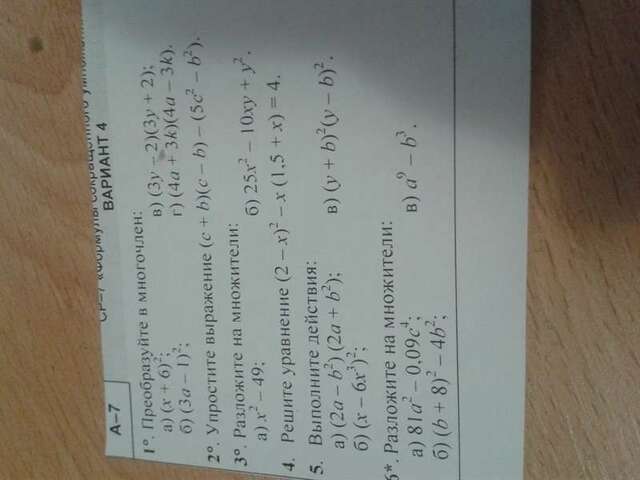 А–7
СР–7 «Формулы сокращённого
ВАРИАНТ 4
1°. Преобразуйте в многочлен:
а) (x + 6)²; в) (3y – 2)(3y + 2);
б) (3a – 1)²; г) (4a + 3k)(4a – 3k).
2°. Упростите выражение (c + b)(c – b) – (5c² – b²).
3°. Разложите на множители:
а) x² – 49; б) 25x² – 10xy + y².
4. Решите уравнение (2 – x)² – x (1,5 + x) = 4.
5. Выполните действия:
а) (2a – b²) (2a + b²); в) (y + b)²(y – b)².
б) (x – 6x³)²;
6*. Разложите на множители:
а) 81a² – 0,09c⁴; в) a⁹ – b³.
б) (b + 8)² – 4b²;